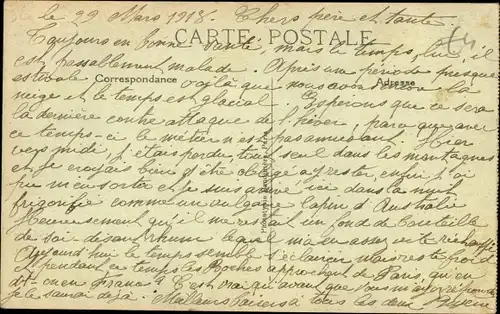 le 29 Mars 1918. Chers père et tante.
CARTE POSTALE
Toujours en bonne santé, mais le temps, lui, il
est passablement malade. Après une période presque
estivale voilà que nous avons la
Correspondance
Adresse
neige et le temps est glacial. Espérons que ce sera
la dernière contre attaque de l'hiver, parce que avec
ce temps-ci le métier n'est pas amusant. Hier
vers midi, j'étais perdu, tout seul dans les montagnes
et je croyais bien d'être obligé d'y rester, enfin j'ai
pu m'en sortir et je suis arrivé ici dans la nuit
frigorifié comme un vulgaire lapin d'Australie
Heureusement qu'il me restait un fond de bouteille
de soi-disant rhum lequel m'a assez vite réchauffé
Aujourd'hui le temps semble s'éclaircir mais reste froid
et pendant ce temps les Boches approchent de Paris, qu'en
dit-on en France? C'est vrai qu'avant que vous m'ayez répondu
je le saurai déjà. Meilleurs baisers à tous les deux